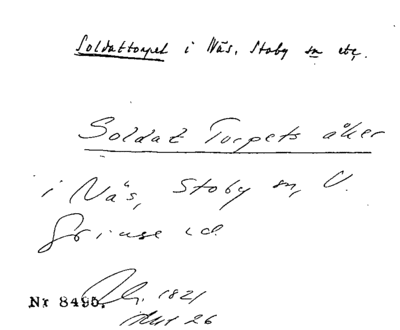 Soldattorpet i Näs, Stoby sn etc.
Soldat Torpets åker
i Näs, Stoby sn, V.
Göinge hd
Nr 8495.
1821
26